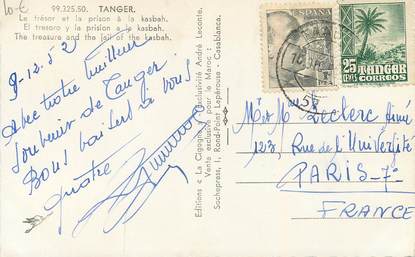 10-€
99.325.50. TANGER.
Le trésor et la prison à la kasbah.
El tresoro y la prision a la kasbah.
The treasure and the jail of the kasbah.
8-12.52
Avec notre meilleur
souvenir de Tanger
Bons baisers à vous
quatre
Editions « La Cigogne » Exclusivité André Leconte.
Vente exclusive pour le Maroc :
Sochepress, 1, Rond-Point Lapérouse - Casablanca.
ESPAÑA
25
CENTS
TANGER
CORREOS
Mr et Mme Leclerc
123, Rue de l'Université
PARIS-7e
FRANCE